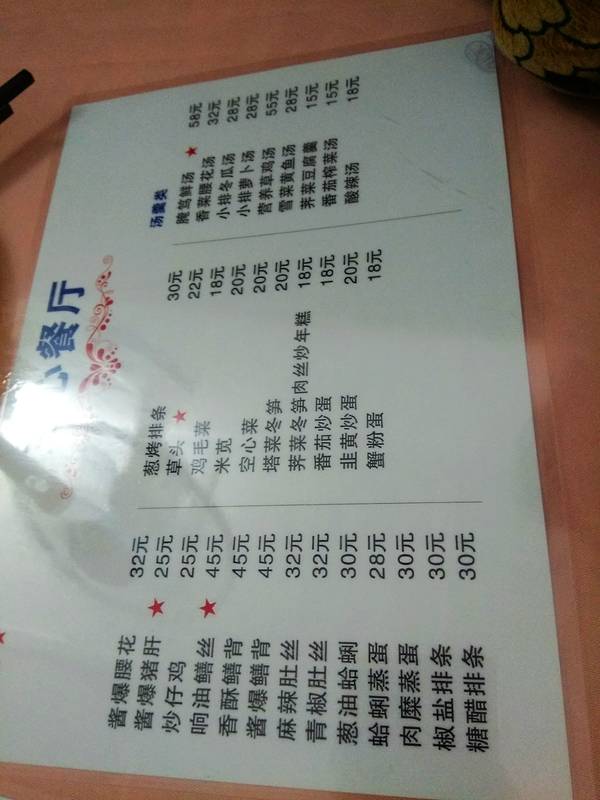 心餐厅
酱爆腰花 32元
酱爆猪肝 25元
炒仔鸡 25元
响油鳝丝 45元
香酥鳝背 45元
酱爆鳝背 45元
麻辣肚丝 32元
青椒肚丝 32元
葱油蛤蜊 30元
蛤蜊蒸蛋 28元
肉糜蒸蛋 30元
椒盐排条 30元
糖醋排条 30元
葱烤排条 30元
草头 22元
鸡毛菜 18元
米苋 20元
空心菜 20元
塔菜冬笋 20元
荠菜冬笋肉丝炒年糕 18元
番茄炒蛋 18元
韭黄炒蛋 20元
蟹粉蛋 18元
汤羹类
腌笃鲜汤 58元
香菜腰花汤 32元
小排冬瓜汤 28元
小排萝卜汤 28元
营养草鸡汤 55元
雪菜黄鱼汤 28元
荠菜豆腐羹 15元
番茄榨菜汤 15元
酸辣汤 18元